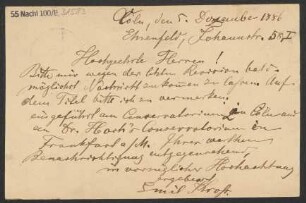 55 Nachl 100/B,
Cöln, den 5. Dezember 1886
Ehrenfeld, Johannstr.
Hochgeehrte Herren!
Bitte mir wegen der letzten Revision baldmöglichst
Nachricht zukommen zu lassen. Auf
dem Titel bitte ich zu vermerken:
eingeführt am Conservatorium in Cöln und
am Dr. Hoch's Conservatorium in
Frankfurt a/M. Ihrer werthen
Benachrichtigung entgegensehend,
in vorzüglicher Hochachtung
ergebenst
Emil